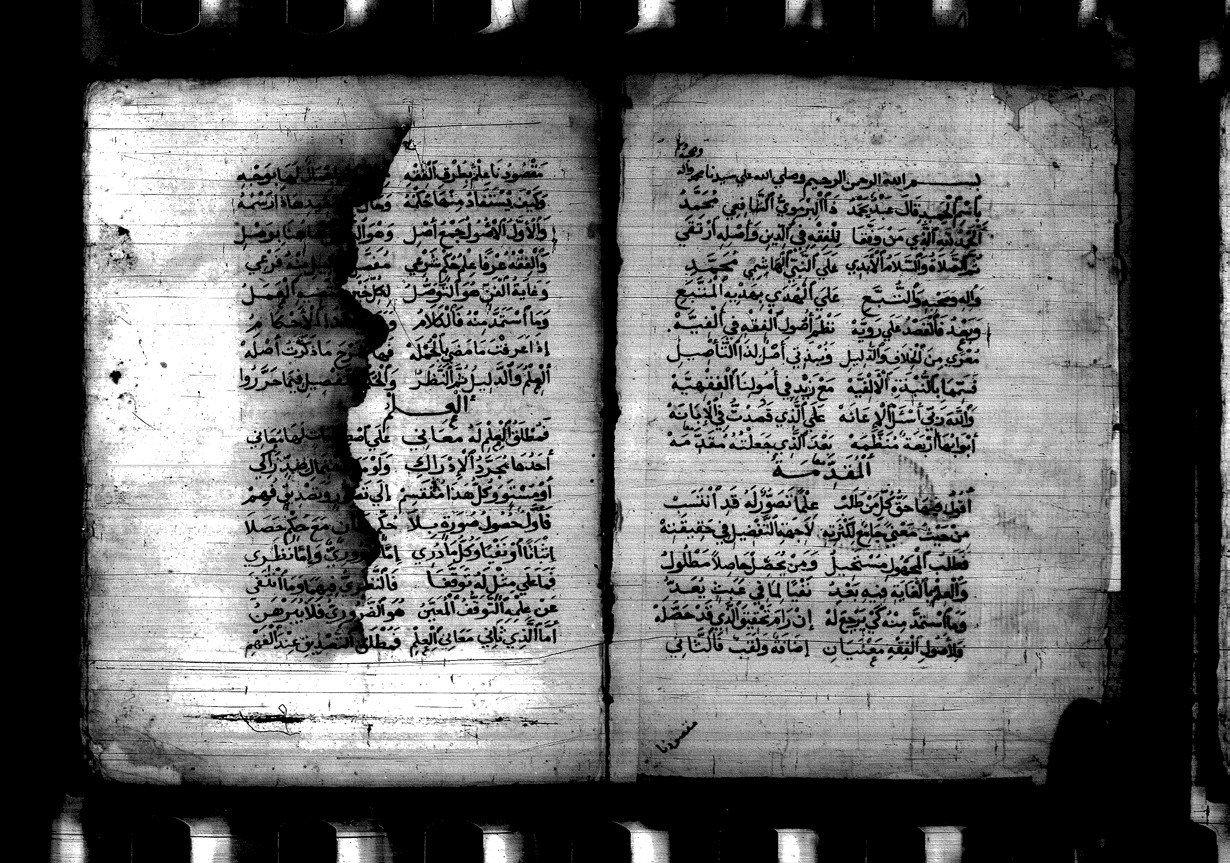 بسم الله الرحمن الرحيم وصلى الله على سيدنا محمد وآله وصحبه
باسم الحميد قال عبد يحمد ذا البرموي الشافعي محمد
الحمد لله الذي من وفقا للفقه في الدين فأصله ارتقى
ثم الصلاة والسلام الأبدي على النبي الهاشمي محمد
وآله وصحبه والتبع على الهدى بهديه المتبع
وبعد فالقصد على رويه نظم أصول الفقه في ألفيه
معرى من الخلاف والدليل ونبذتي أصل لذا التأصيل
فسمها بالنبذة الألفيه مع زيد في أصولنا الفقهيه
والله ربي أسئل الإعانه على الذي قصدت في الإبانه
أبوابها أربعة منتظمه بعد الذي جعلته مقدمه
المقدمة
أقول فيها حق كل من طلب علما تصوره له قد انتسب
من حيث معنى جامع لكثرته لا جهة التفصيل في حقيقته
فطلب المجهول مستحيل ومن يحصل حاصلا مطلول
والعلم بالغاية فيه بعد نفيا لما في عبث يعد
وما استمد منه كي يرجع له إن رام تحقيق الذي قد حصله
فلأصول الفقه معنيان إضافة ولقب فالثاني
مقصودنا
مقصودنا علم بطرق الفقه لها بوجه
وكيف يستفاد منها حكمه وحال هذا رسمه
والأول الأصول جمع أصل وهو
والفقه عرفا علم حكم شرعي فرعي
وغاية الفن هو التوصل العمل
وما استمد منه فالكلام الأحكام
إذا عرفت ما مضى بالجمله ما ذكرت أصله
العلم والدليل ثم النظر التفصيل فيما حرروا
العلم
فمطلق العلم له معاني على لها معاني
أحدها مجرد الإدراك ولو
أو مستو وكل هذا منقسم إلى وتصديق فهم
فأول حصول صورة بلا حكم مع حكم حصلا
إثباتا أو نفيا وكل ما دري إما ضروري وإما نظري
فما على مثل له توقفا فالنظري فيهما وما انتفى
عن علمه التوقف المعين هو الضروري فلا يبرهن
أما الذي ثاني معاني العلم فمطلق التصديق عند الفهم